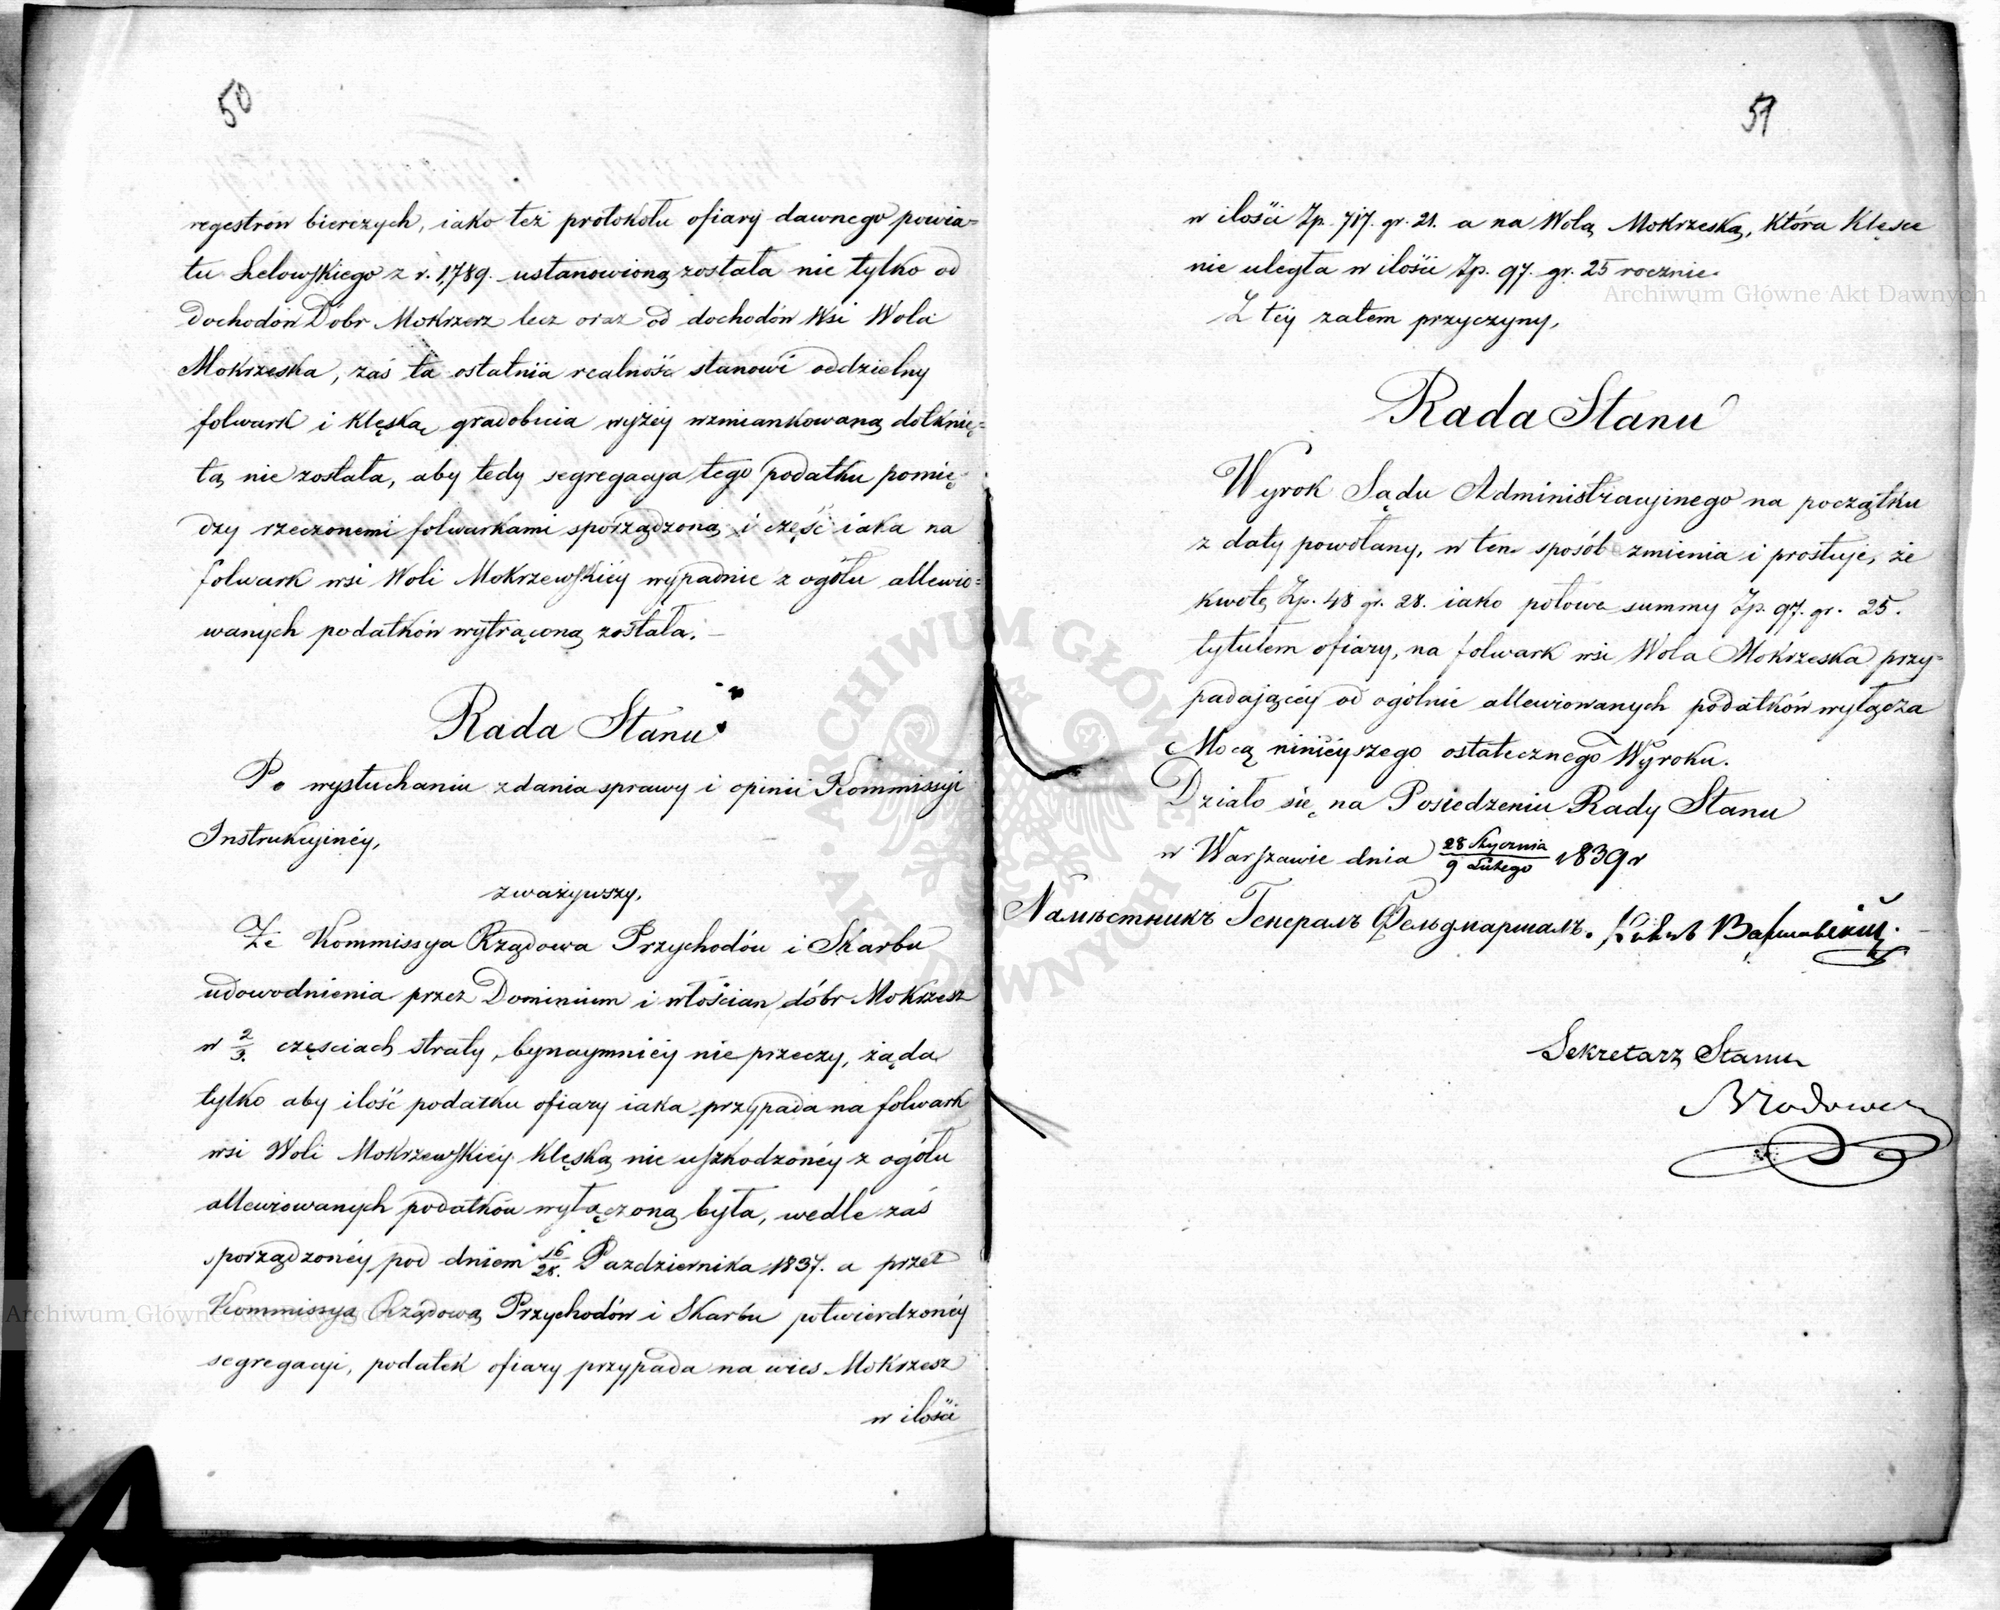 50
regestrow bierczych, iako też protokołu ofiary dawnego powia=
tu Lelowskiego z r. 1789. ustanowioną została nie tylko od
Dochodów Dóbr Mokrzesz lecz oraz od dochodów Wsi Wola
Mokrzeska, zaś ta ostatnia realność stanowi oddzielny
folwark i klęską gradobicia wyżey wzmiankowaną dotknię=
tą nie została, aby tedy segregacya tego podatku pomię
dzy rzeczonemi folwarkami sporządzoną i część iaka na
folwark wsi Woli Mokrzewskiéy wypadnie z ogółu allewio=
wanych podatków wytrąconą została. —
Rada Stanu
Po wysłuchaniu zdania sprawy i opinii Kommissyi
Instrukcyinéy,
zważywszy,
Że Kommissya Rządowa Przychodów i Skarbu
udowodnienia przez Dominium i włościan dóbr Mokrzesz
w 2/3. częsciach straty, bynaymniéy nie przeczy, żąda
tylko aby ilość podatku ofiary iaka przypada na folwark
wsi Woli Mokrzewskiéy klęską nie uszkodzonéy z ogółu
allewiowanych podatków wyłączoną była, wedle zaś
sporządzonéy pod dniem 16/28. Pazdziernika 1837. a przez
Kommissyą Rządową Przychodów i Skarbu potwierdzonéy
segregacyi, podatek ofiary przypada na wies Mokrzesz
w ilości
51
w ilości Zp. 717. gr. 21. a na Wolą Mokrzeską, która klęsce
nie uległa w ilości Zp. 97. gr. 25 rocznie.
Z téy zatem przyczyny,
Rada Stanu
Wyrok Sądu Administracyjnego na początku
z daty powołany, w ten sposób zmienia i prostuje, że
kwotę Zp. 48 gr. 28. iako połowę summy Zp. 97. gr. 25.
tytułem ofiary, na folwark wsi Wola Mokrzeska przy=
padającéy od ogólnie allewiowanych podatków wyłącza
Mocą ninieyszego ostatecznego Wyroku.
Działo się na Posiedzeniu Rady Stanu
w Warszawie dnia 28 Stycznia/9 Lutego 1839 r
Намѣстникъ Генералъ Фельдмаршалъ. Князь Варшавскій.
Sekretarz Stanu
Archiwum Główne Akt Dawnych
Archiwum Główne Akt Dawnych
ARCHIWUM GŁÓWNE AKT DAWNYCH